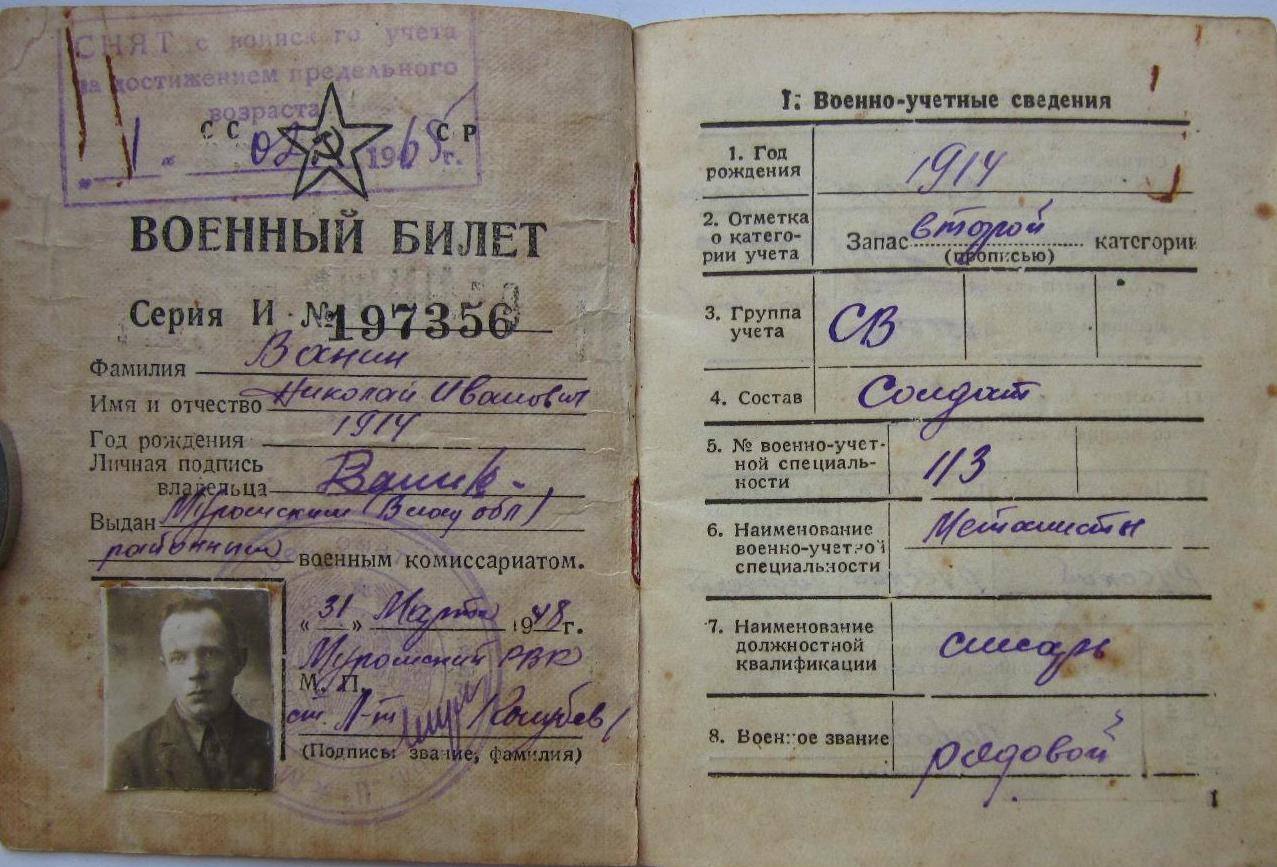 СНЯТ с воинского учета
за достижением предельного
возраста
СС СР
„ 1 “ 02 1965 г.
ВОЕННЫЙ БИЛЕТ
Серия И № 197356
Фамилия Ванин
Имя и отчество Николай Иванович
Год рождения 1914
Личная подпись
владельца Ванин
Выдан Муромским
районным военным комиссариатом.
„31" Марта 1948 г.
Муромский РВК
М. П.
ст. л-т
(Подпись, звание, фамилия)
I. Военно-учетные сведения
1. Год
рождения 1914
2. Отметка
о катего-
рии учета
Запас второй категории
(прописью)
3. Группа
учета СВ
4. Состав Солдат
5. № военно-учет-
ной специаль-
ности 113
6. Наименование
военно-учетной
специальности
Металисты
7. Наименование
должностной
квалификации
слесарь
8. Военное звание рядовой
1